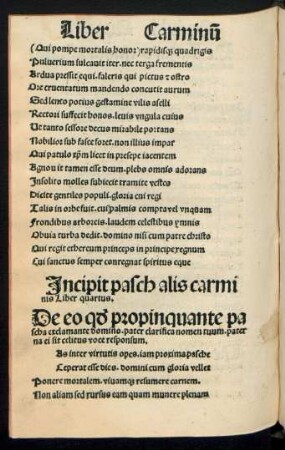 Liber Carminū
(Qui pompe mortalis honor) rapidisqꝫ quadrigis
Puluerium sulcauit iter. nec terga frementis
Ardua pressit equi. faleris qui pictus ⁊ ostro
Ore cruentarum mandendo concutit aurum
Sed lento potius gestamine vilis aselli
Rectori suffecit honos. leuis vngula cuius
Ut tanto sessore decus mirabile portans
Nobilior sub fasce foret. non illius impar
Qui patulo xp̄m licet in presepe iacentem
Agnouit tamen esse deum. plebs omnis adorans
Insolito molles subiecit tramite vestes
Dicite gentiles populi. gloria cui regi
Talis in orbe fuit. cui palmis compta vel vnquam
Frondibus arboreis. laudem celestibus ymnis
Obuia turba dedit. domino nisi cum patre christo
Qui regit ethereum princeps in principe regnum
Cui sanctus semper congregnat spiritus eque
Incipit pasch alis carmi
nis Liber quartus.
De eo qd̄ propinquante pa
scha exclamante domino. pater clarifica nomen tuum. pater
na ei sit celitus voce responsum.
As inter virtutis opes. iam proxima pasche
Ceperat esse dies. domini cum gloria vellet
Ponere mortalem. viuamqꝫ resumere carnem.
Non aliam sed rursus eam quam munere plenam